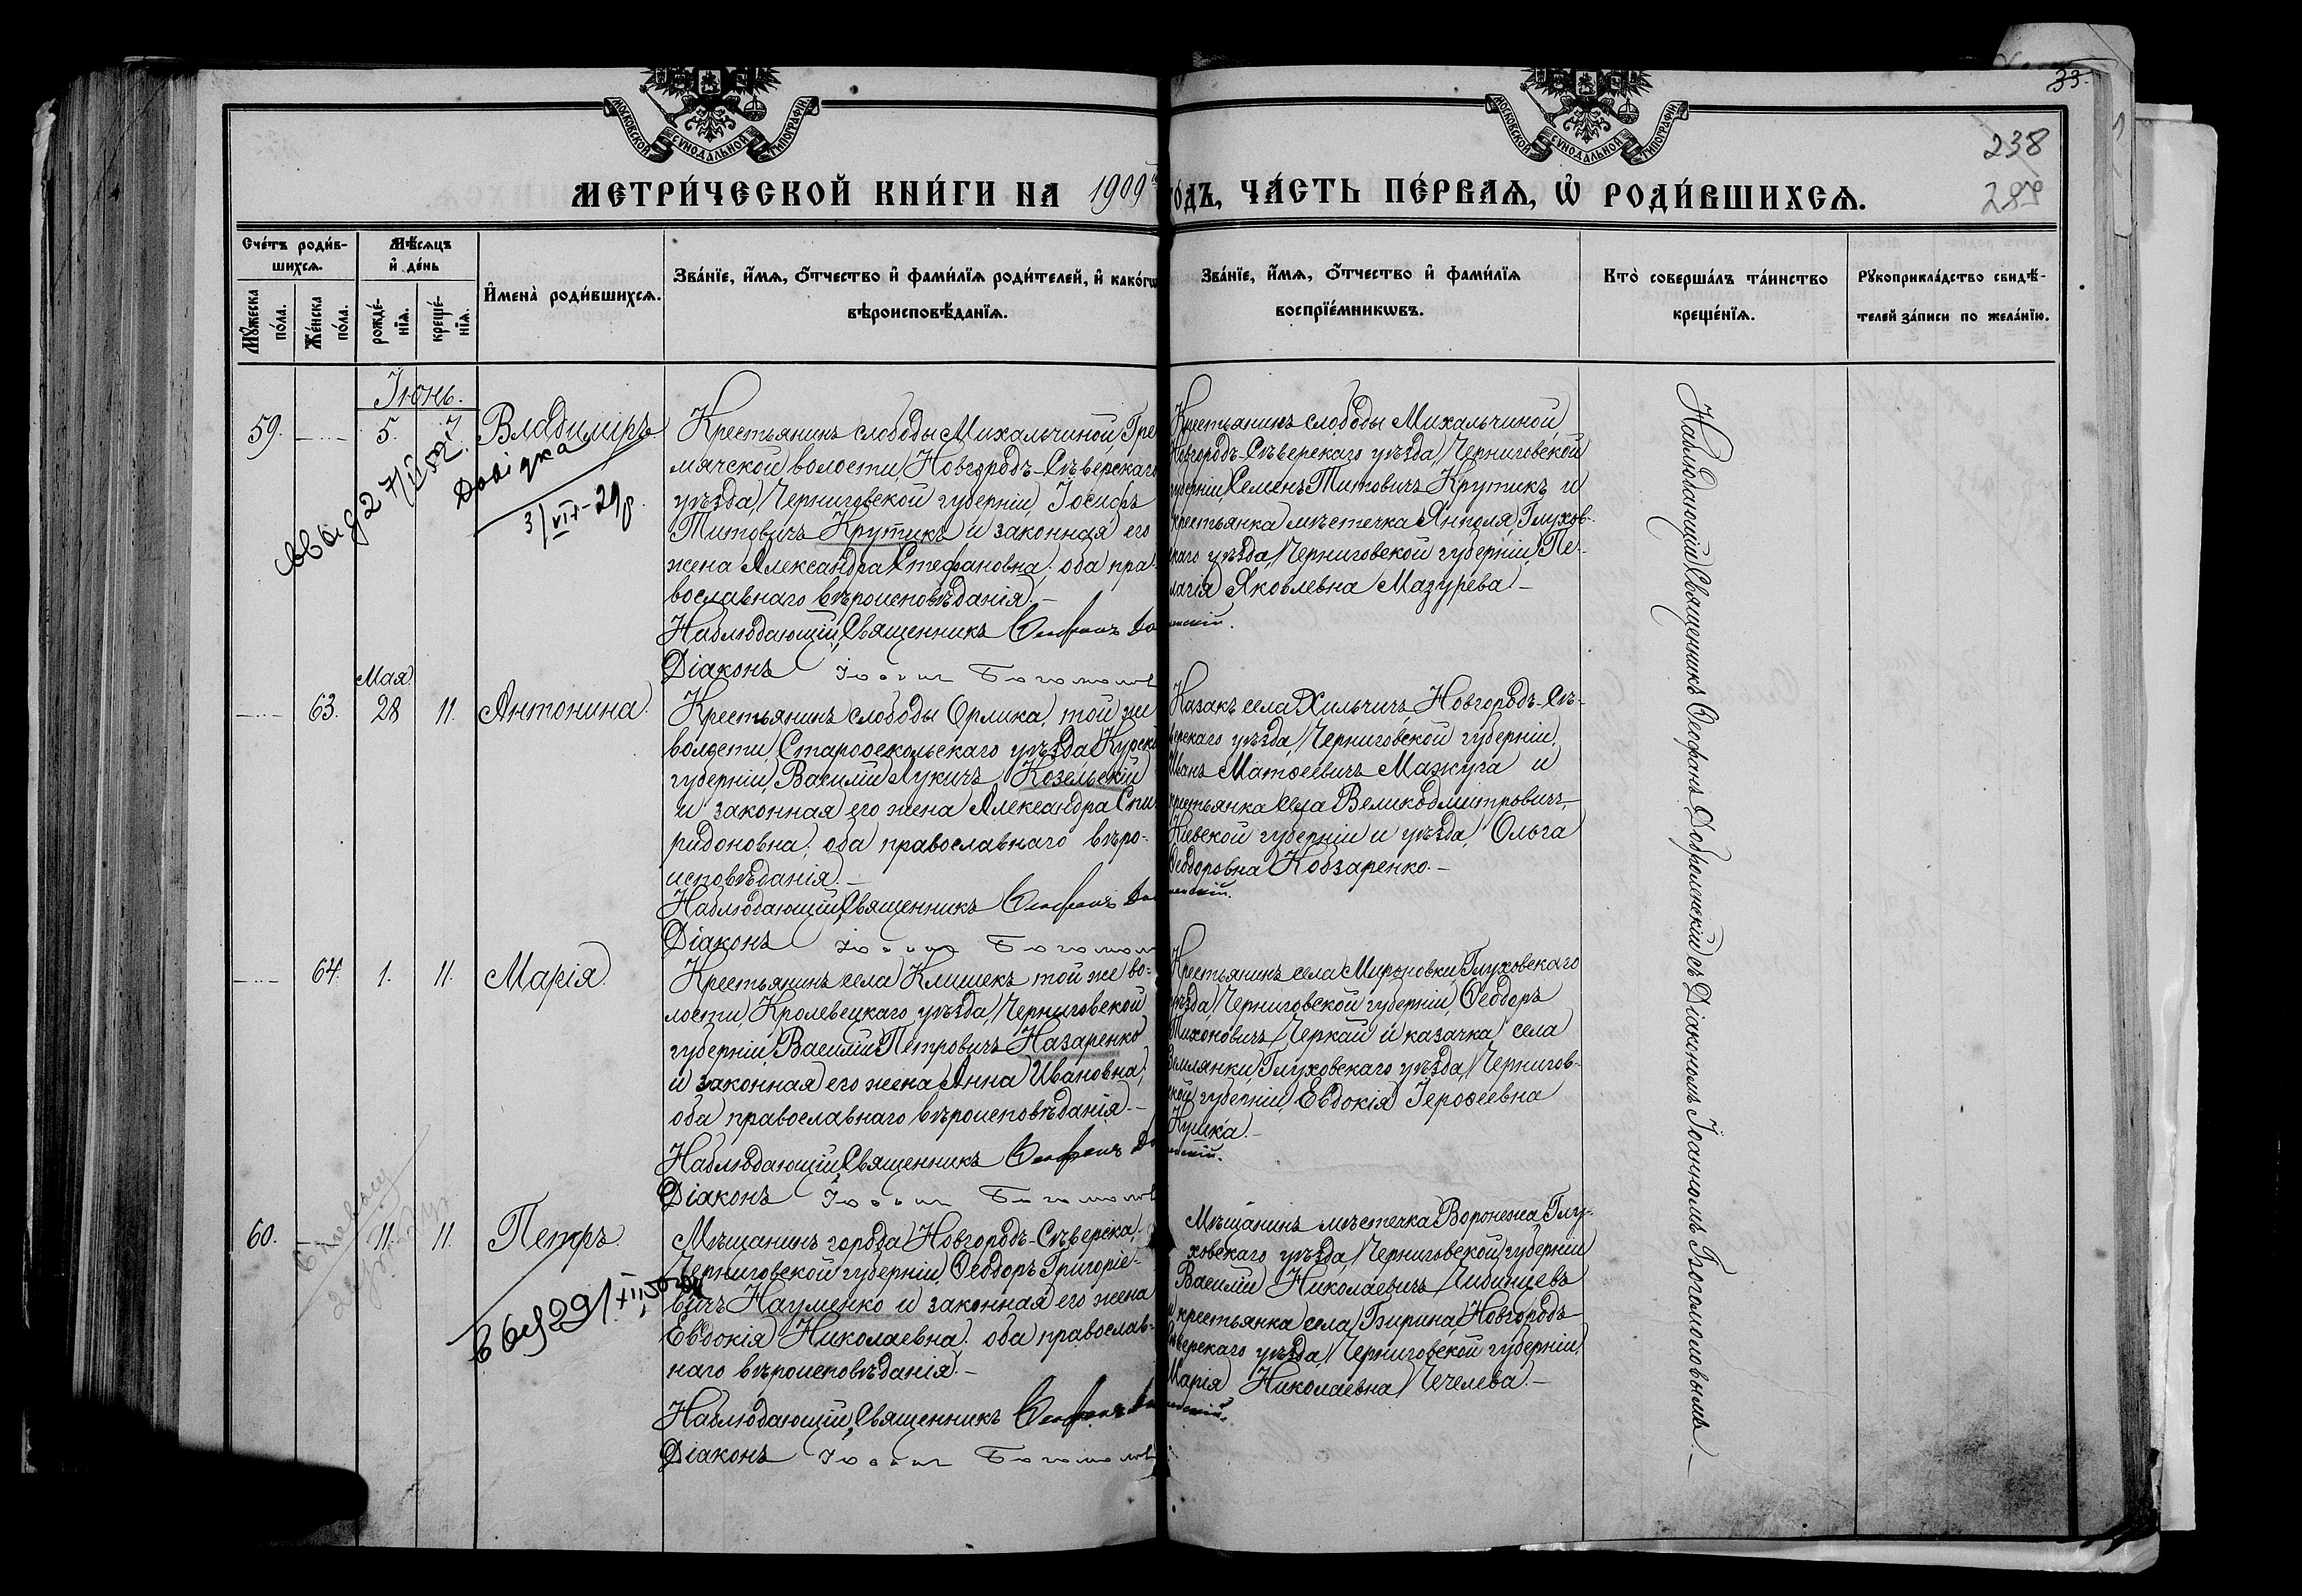 33.
238
289
МОСКОВСКОЙ СѴНОДАЛЬНОЙ ТИПОГРАФІИ
МОСКОВСКОЙ СѴНОДАЛЬНОЙ ТИПОГРАФІИ
МЕТРИ́ЧЕСКОЙ КНИ́ГИ НА 1909й го́дъ, ЧА́СТЬ ПЕ́РВАѦ, Ѡ҆ РОДИ́ВШИХСѦ.
Сче́тъ роди́в-
шихсѧ.
Мꙋ́жеска
по́ла.
Же́нска
по́ла.
Мѣ́сѧцъ
и҆ де́нь
рожде́-
нїѧ.
креще́-
нїѧ.
И҆мена̀ роди́вшихсѧ.
Зва́нїе, и҆́мѧ, ѻ҆́тчество и҆ фами́лїѧ роди́телей, и҆ како́гѡ
вѣроисповѣ́данїѧ.
Зва́нїе, и҆́мѧ, ѻ҆́тчество и҆ фами́лїѧ
воспрїе́мникѡвъ.
Кто̀ соверша́лъ та́инство
креще́нїѧ.
Рꙋкоприкла́дство свидѣ́-
телей за́писи по жела́нїю.
Іюнь.
59. 5. 7. Владиміръ
Довідка
3/VII-29р.
Крестьянинъ слободы Михальчиной, Гре-
мячской волости, Новгородъ-Сѣверскаго
уѣзда, Черниговской губерніи, Іосифъ
Титовичъ Крутикъ и законная его
жена Александра Стефановна; оба пра-
вославнаго вѣроисповѣданія.-
Наблюдающій, Священникъ
Діаконъ
Крестьянинъ слободы Михальчиной
Новгородъ-Сѣверскаго уѣзда, Черниговской
губерніи, Семенъ Титовичъ Крутикъ и
крестьянка мѣстечка Янполя, Глухов-
скаго уѣзда, Черниговской губерніи, Пе-
лагія Яковлевна Мазурева.-
Мая
63. 28 11. Антонина.
Крестьянинъ слободы Орлика, той же
волости, Старооскольскаго уѣзда Курской
губерніи, Василій Лукичъ Козельскій
и законная его жена Александра Спи-
ридоновна; оба православнаго вѣро-
исповѣданія.-
Наблюдающій, Священникъ
Діаконъ
Казакъ села Хильчичъ, Новгородъ-Сѣ-
верскаго уѣзда, Черниговской губерніи,
Иванъ Матѳеевичъ Мажуга и
крестьянка села Великодмитровичъ,
Кіевской губерніи и уѣзда, Ольга
Ѳеодоровна Кобзаренко.-
64. 1. 11. Марія.
Крестьянинъ села Клишекъ той же во-
лости, Кролевецкаго уѣзда, Черниговской
губерніи, Василій Петровичъ Назаренко
и законная его жена Анна Ивановна;
оба православнаго вѣроисповѣданія.-
Наблюдающій, Священникъ
Діаконъ
Крестьянинъ села Мироновки, Глуховскаго
уѣзда, Черниговской губерніи, Ѳеодоръ
Тихоновичъ Черкай и казачка села
Землянки, Глуховскаго уѣзда, Чернигов-
ской губерніи, Евдокія Іероѳеевна
Кушка.-
60. 11. 11. Петръ.
Мѣщанинъ города Новгородъ-Сѣверска,
Черниговской губерніи, Ѳеодоръ Григоріе-
вичъ Науменко и законная его жена
Евдокія Николаевна; оба православ-
наго вѣроисповѣданія.-
Наблюдающій, Священникъ
Діаконъ
Мѣщанинъ мѣстечка Воронежа Глу-
ховскаго уѣзда, Черниговской губерніи
Василій Николаевичъ Чибинцевъ
и крестьянка села Бирина, Новгородъ-
Сѣверскаго уѣзда, Черниговской губерніи,
Марія Николаевна Чечелева.-
Наблюдающій Священникъ Ѳеофанъ Доброленскій съ Діакономъ Іоанномъ Богомоловымъ.-